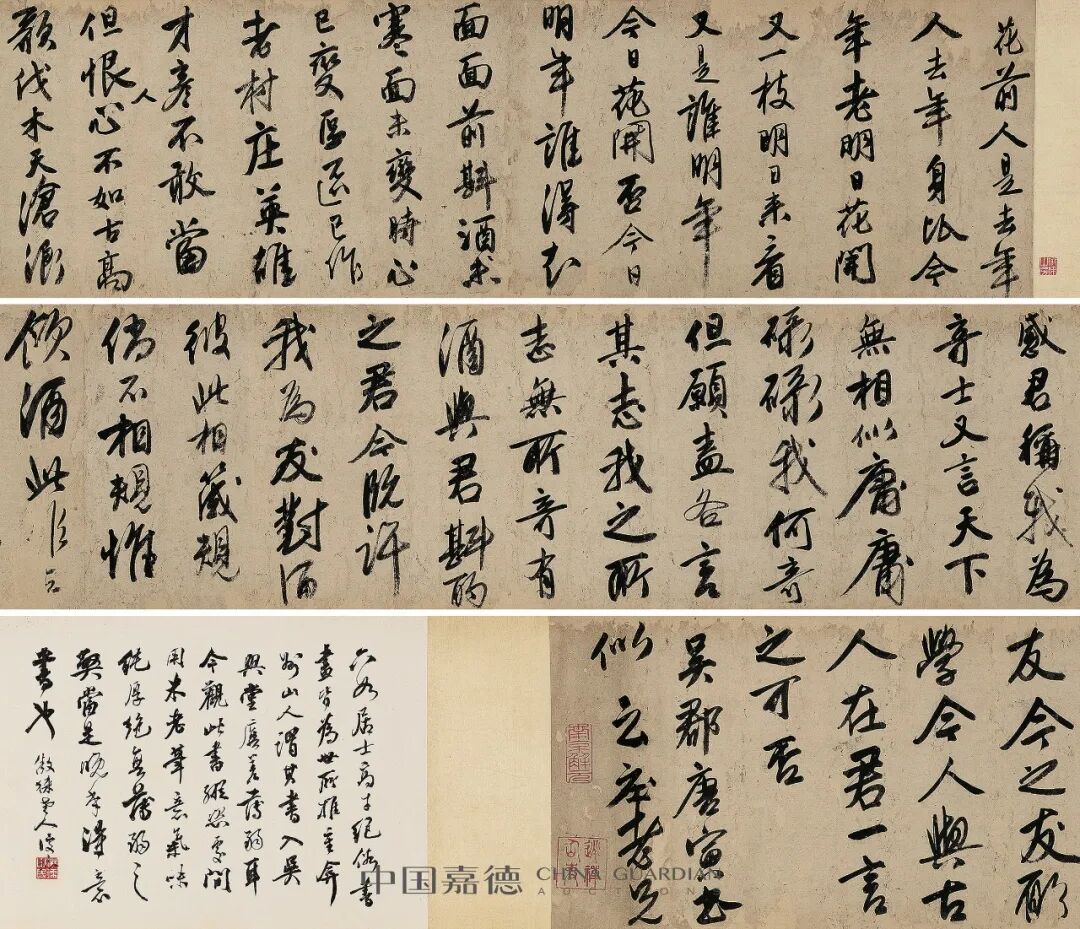 花前人是去年
人去年身比今
年老明日花開
又一枝明日来看
又是誰明年
今日花開否今日
明年誰得知
面面前斟酒未
寒面未變時心
已變區區已作
老村庄英雄
才彥不敢當
但恨人心不如古高
歌伐木天滄浪
感君稱我為
奇士又言天下
無相似庸庸
碌碌我何奇
但願盍各言
其志我之所
志無所奇有
酒與君斟酌
之君今既許
我為友對酒
彼此相箴規
倘不相規惟
飲酒此
友今之友
學今人與古
人在君一言
之可否
吳郡唐寅書
似云莊老兄
六如居士高才絕俗書
畫皆為世所推重弇
州山人謂其書入吳
興堂廡差薄弱耳
今觀此書縱恣處間
用米老筆意氣味
純厚絕無薄弱之
弊當是晚年得意
書也
中国嘉德 CHINA GUARDIAN
AUCTIONS